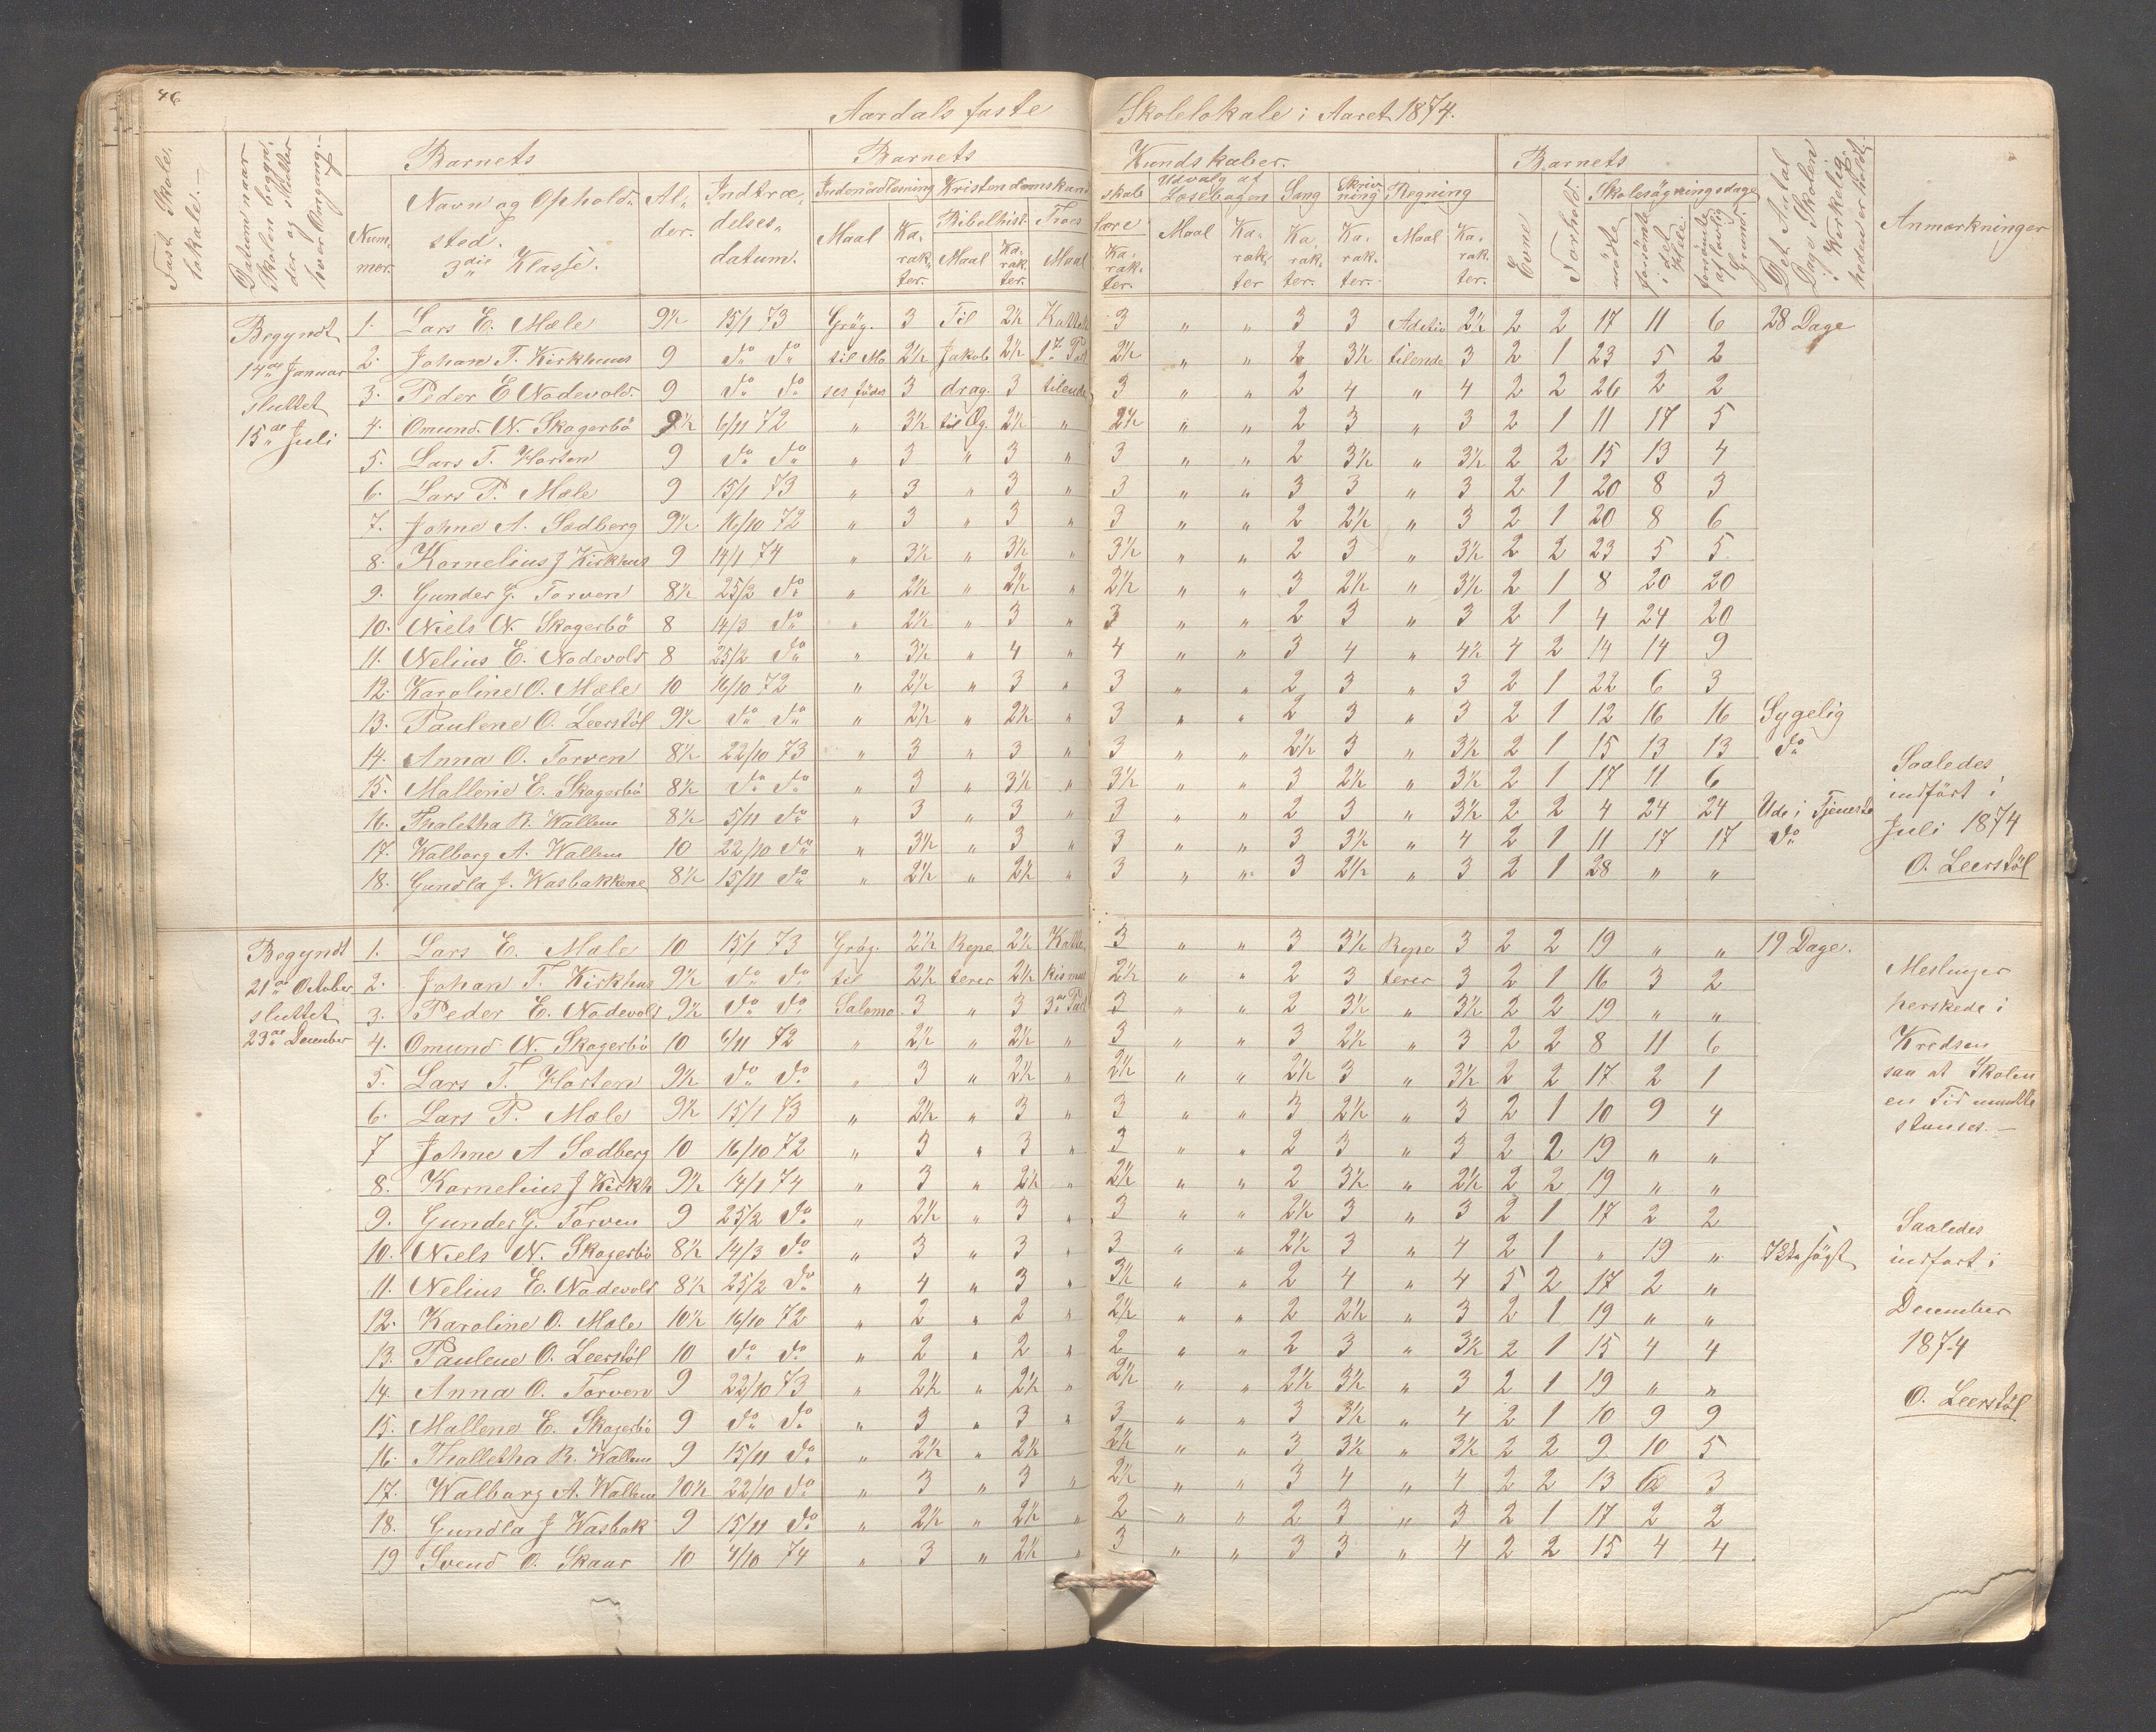 46
Aardals faste Skolelokale i Aaret 1874.
Fast Skolelokale.
Datum naar Skolen begynder og slutter hver Omgang.
Barnets
Barnets
Kundskaber.
Barnets
Det Antal Dage Skolen i Virkeligheden er holdt.
Anmærkninger
Nummer.
Navn og Opholdssted.
3die Klasse.
Alder.
Indtrædelsesdatum.
Indenadlæsning Kristendomskundskab Udvalg af Læsebogen Sang Skrivning Regning
Evne Forhold. Skolesøgningsdage
Maal Karakter. Bibelhist. Maal Karakter. Troeslære Maal Karakter. Maal Karakter Karakter. Karakter. Maal Karakter.
mødte forsømte i det Hele. forsømte af lovlig Grund.
Begyndt
14de Januar
sluttet
15de Juli
1. Lars E. Mæle 9½ 15/1 73 Grøg. 3 Til 2½ Kattek 3 " " 3 3 Aditio 2½ 2 2 17 11 6 28 Dage
2. Johan T. Kirkhuus 9 do do til Mo 2½ Jakob 2½ 1. Part 2½ " " 2 3½ tilende 3 2 1 23 5 2
3. Peder E Nodevold. 9 do do ses fødes 3 drag. 3 tilende 3 " " 2 4 " 4 2 2 26 2 2
4. Omund. N. Skogerbö 9½ 6/11 72 " 3½ til Æg. 2½ " 2½ " " 2 3 " 3 2 1 11 17 5
5. Lars T. Horten 9 do do " 3 " 3 " 3 " " 2 3½ " 3½ 2 2 15 13 4
6. Lars P. Mæle 9 15/1 73 " 3 " 3 " 3 " " 3 3 " 3 2 1 20 8 3
7. Johne A. Sædberg 9½ 16/10 72 " 3 " 3 " 3 " " 2 2½ " 3 2 1 20 8 6
8. Kornelius J Kirkhus 9 14/1 74 " 3½ " 3½ " 3½ " " 2 3 " 3½ 2 2 23 5 5
9. Gunder G. Torven 8½ 25/2 do " 2½ " 2½ " 2½ " " 3 2½ " 3½ 2 1 8 20 20
10. Niels N. Skogerbö 8 14/3 do " 2½ " 3 " 3 " " 2 3 " 3 2 1 4 24 20
11. Nelius E. Nodevold 8 25/2 do " 3½ " 4 " 4 " " 3 4 " 4½ 4 2 14 14 9
12. Karoline O. Mæle 10 16/10 72 " 2½ " 3 " 3 " " 2 3 " 3 2 1 22 6 3
13. Paulene O. Leerstöl 9½ do do " 2½ " 2½ " 3 " " 2 3 " 3 2 1 12 16 16 Sygelig
14. Anna O. Torven 8½ 22/10 73 " 3 " 3 " 3 " " 2½ 3 " 3½ 2 1 15 13 13 do
15. Mallene E. Skogerbö 8½ do do " 3 " 3½ " 3½ " " 3 2½ " 3½ 2 1 17 11 6
16. Thaletha R. Wallem 8½ 5/11 do " 3 " 3 " 3 " " 2 3 " 3½ 2 2 4 24 24 Ude i Tjeneste
17. Walborg A. Wallem 10 22/10 do " 3½ " 3 " 3 " " 3 3½ " 4 2 1 11 17 17 do
18. Gundla J. Wasbakkene 8½ 15/11 do " 2½ " 2½ " 3 " " 3 2½ " 3 2 1 28 " "
Saaledes
indført i
Juli 1874
O. Leerstöl
Begyndt
21de October
sluttet
23de December
1. Lars E. Mæle 10 15/1 73 Grøg. 2½ Repe 2½ Katte 3 " " 3 3½ Repe 3 2 2 19 " " 19 Dage.
2. Johan T. Kirkhus 9½ do do til 2½ terer 2½ kismus 2½ " " 2 3 terer 3 2 1 16 3 2
3. Peder E. Nodevold 9½ do do Salomo 3 " 3 3die Part 3 " " 2 3½ " 3½ 2 2 19 " "
4. Omund N. Skogerbö 10 6/11 72 " 2½ " 2½ " 3 " " 3 2½ " 3 2 2 8 11 6
5. Lars T. Horten 9½ do do " 3 " 2½ " 2½ " " 2½ 3 " 3½ 2 2 17 2 1
6. Lars P. Mæle 9½ 15/1 73 " 2½ " 3 " 3 " " 3 2½ " 3 2 1 10 9 4
7 Johne A Sædberg 10 16/10 72 " 3 " 3 " 3 " " 2 3 " 3 2 2 19 " "
8. Kornelius J Kirkh 9½ 14/1 74 " 3 " 2½ " 2½ " " 2 3½ " 2½ 2 2 19 " "
9. Gunder G. Torven 9 25/2 do " 2½ " 3 " 3 " " 2½ 3 " 3 2 1 17 2 2
10. Niels N. Skogerbö 8½ 14/3 do " 3 " 3 " 3 " " 2½ 3 " 4 2 1 " 19 " Ikke søgt
11. Nelius E. Nodevold 8½ 25/2 do " 4 " 3 " 3½ " " 2 4 " 4 5 2 17 2 "
12. Karoline O. Mæle 10½ 16/10 72 " 2 " 2 " 2½ " " 2 2½ " 3 2 1 19 " "
13. Paulene O. Leerstöl 10 do do " 2 " 2 " 2 " " 2 3 " 3½ 2 1 15 4 4
14. Anna O. Torven 9 22/10 73 " 2½ " 2½ " 2½ " " 2½ 3½ " 3 2 1 19 " "
15. Mallene E. Skogerbö 9 do do " 3 " 3 " 3 " " 3 3½ " 4 2 1 10 9 9
16. Thalletha R. Wallem 9 15/11 do " 2½ " 2½ 2½ " " 3 3½ " 3½ 2 2 9 10 5
17. Walborg A. Wallem 10½ 22/10 do " 3 " 3 " 2½ " " 3 4 " 4 2 2 13 6 3
18. Gundla J Wasbak 9 15/11 do " 2½ " 2½ " 2 " " 2 3 " 3 2 1 17 2 2
19 Svend O. Skaar 10 4/10 74 " 3 " 2½ " 3 " " 3 3 " 4 2 2 15 4 4
Meslinger
herskede i
Kredsen
saa at Skolen
en Tid maatte
stanses.
Saaledes
indført i
December
1874
O. Leerstöl